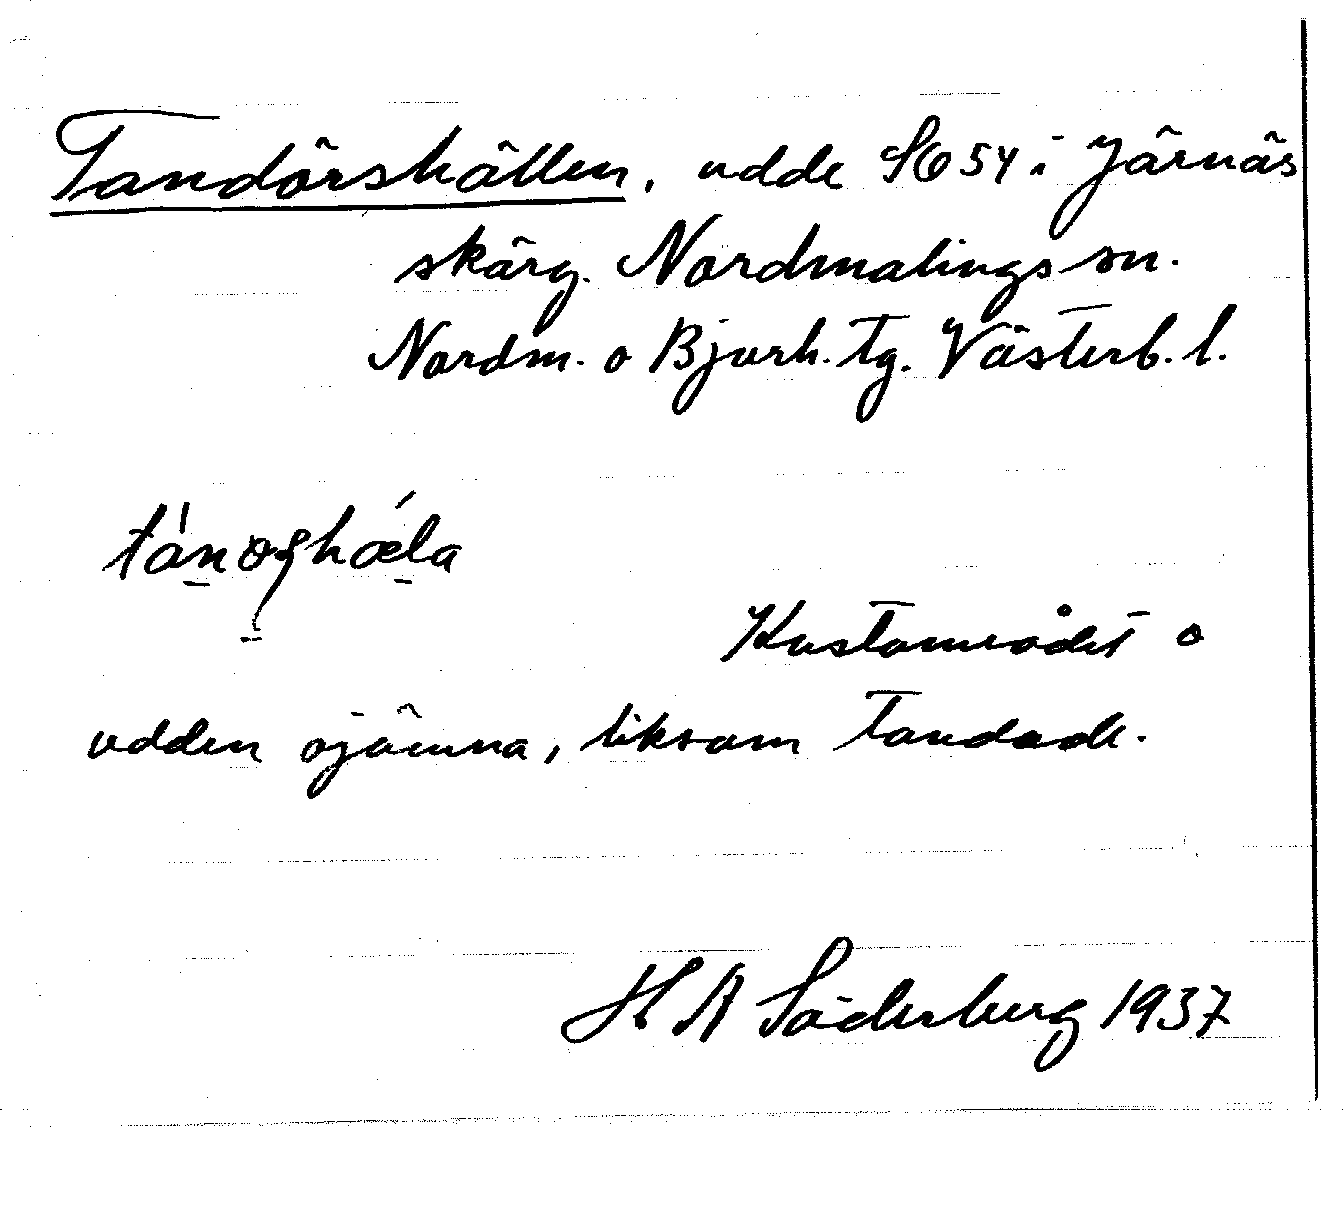 Tandörshällen, udde SO 54 i Järnäs
skärg. Nordmalings sn.
Nordm. o Bjurh. Tg. Västerb. l.
Kustområdet o
udden ojämna, liksom Tandade.
H A Söderberg 1937